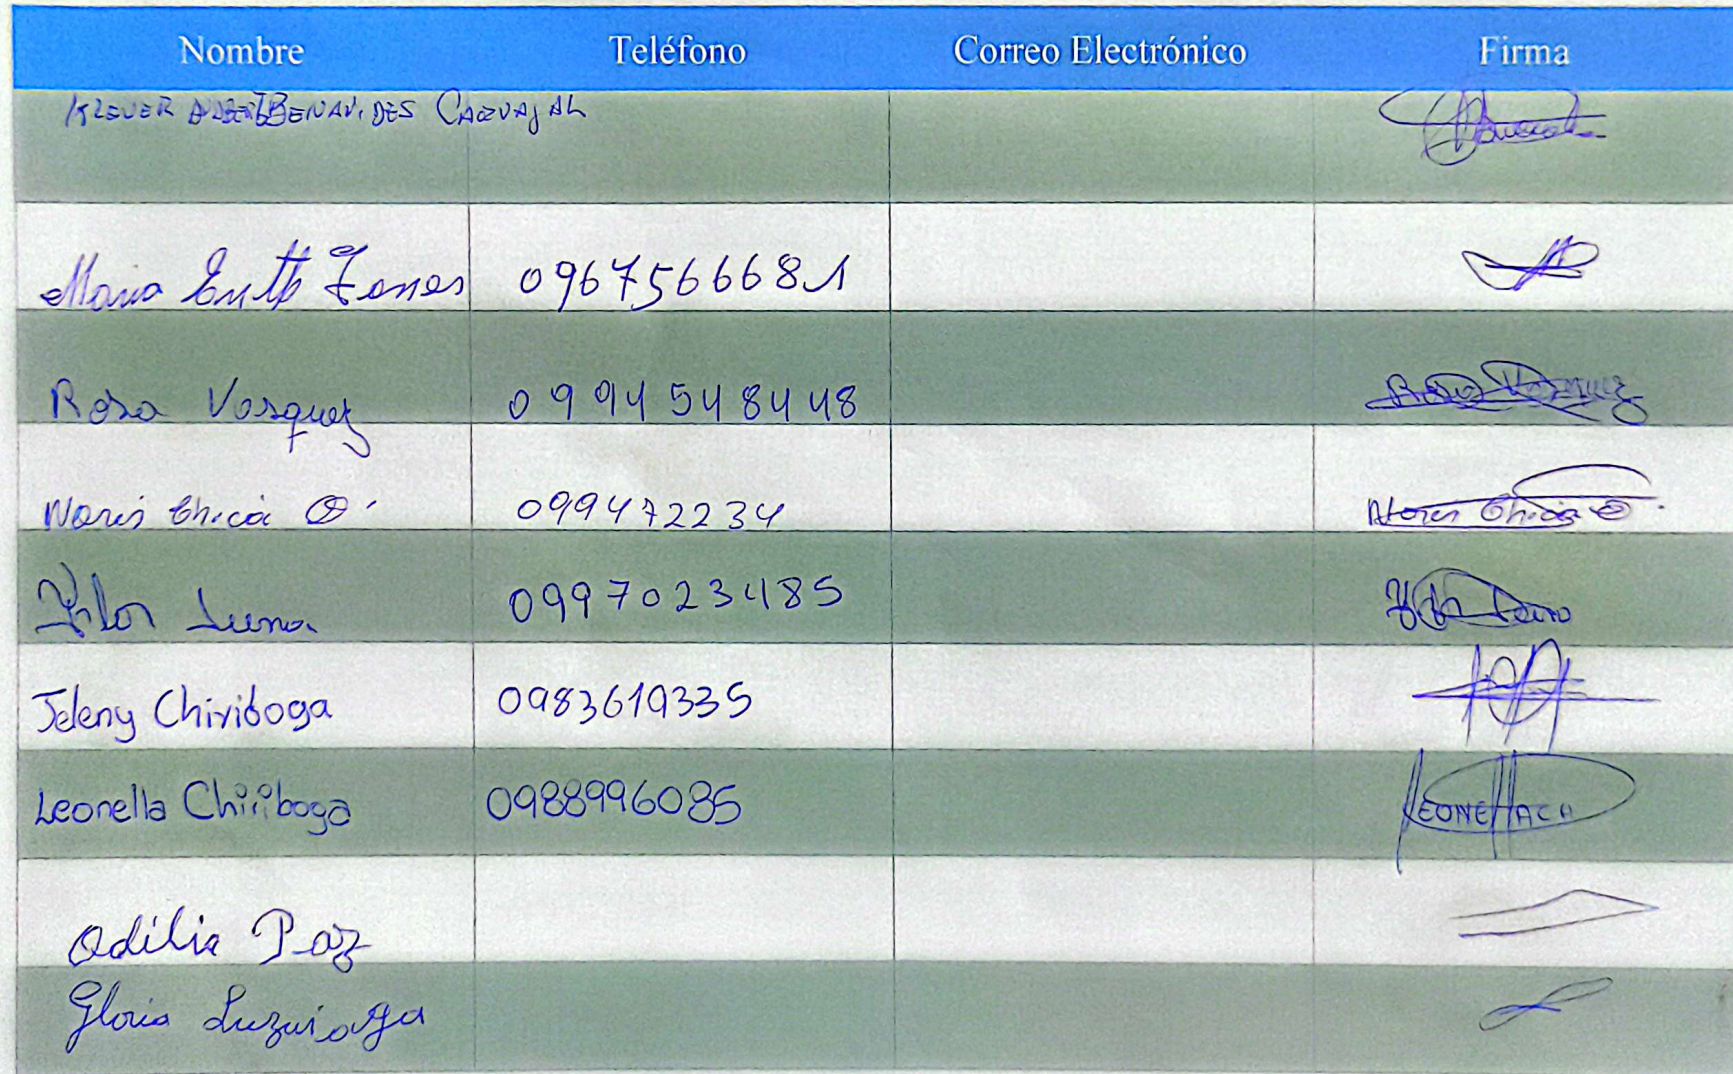 Nombre Teléfono Correo Electrónico Firma
KLEVER BENAVIDES CARVAJAL
Maria Torres 0967566681
Rosa Vasquez 0994548448 Rosa Vasquez
Noris Chica 099472234 Noris Chica
Luna 0997023485
Jeleny Chiriboga 0983619335
Leonella Chiriboga 0988996085 LEONELLACH
Odilia Paz
Gloria Luzuriaga